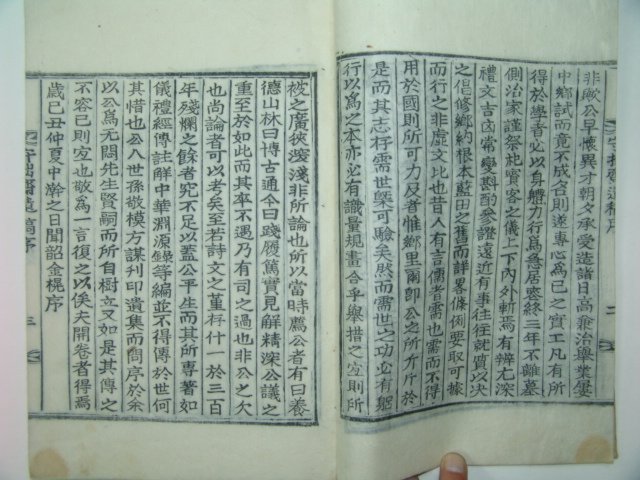 非厥公早懷異才朝夕承爰造詣日高兼治舉業屢
中鄉試而竟不成名則遂專心爲己之實工凡有所
得於學者必以身軆力行爲急居喪終三年不離墓
側治家謹祭祀賓客之儀上下內外斬焉有辨尤深
禮文吉凶常變斟酌叅證遠近有事徃徃就質以决
之倡修鄉約根本藍田之舊而詳畧條例要取可據
而行之非虛文也昔人有言儒者需也需而不得
用於國則所可及者惟鄉里爾卽公之所斤斤於
是而其志存需世槩可驗矣然而需世之功必有躬
行以爲之本亦必有識量規畫合乎舉措之宜則所
被之廣狹淺淺非所論也所以當時薦公者有曰養
德山林曰博古通今曰踐履篤實見解精深公議之
重至於如此而其卒不遇乃有司之過也非公之欠
也尚論者可以考矣至若詩文之菫存什一於三百
年殘爛之餘者究不足以盖公平生而其所專著如
儀禮經傳註解中華淵源錄等編並不得傳於世何
其惜也公八世孫敬模方謀刊印遺集而問序於余
以公爲无悶先生賢嗣而所自樹立又如是其傳之
不容已則宜也敬爲一言復之以俟夫開卷者得焉
歲己丑仲夏中澣之日聞韶金榥序
齋遺稿序
三
二